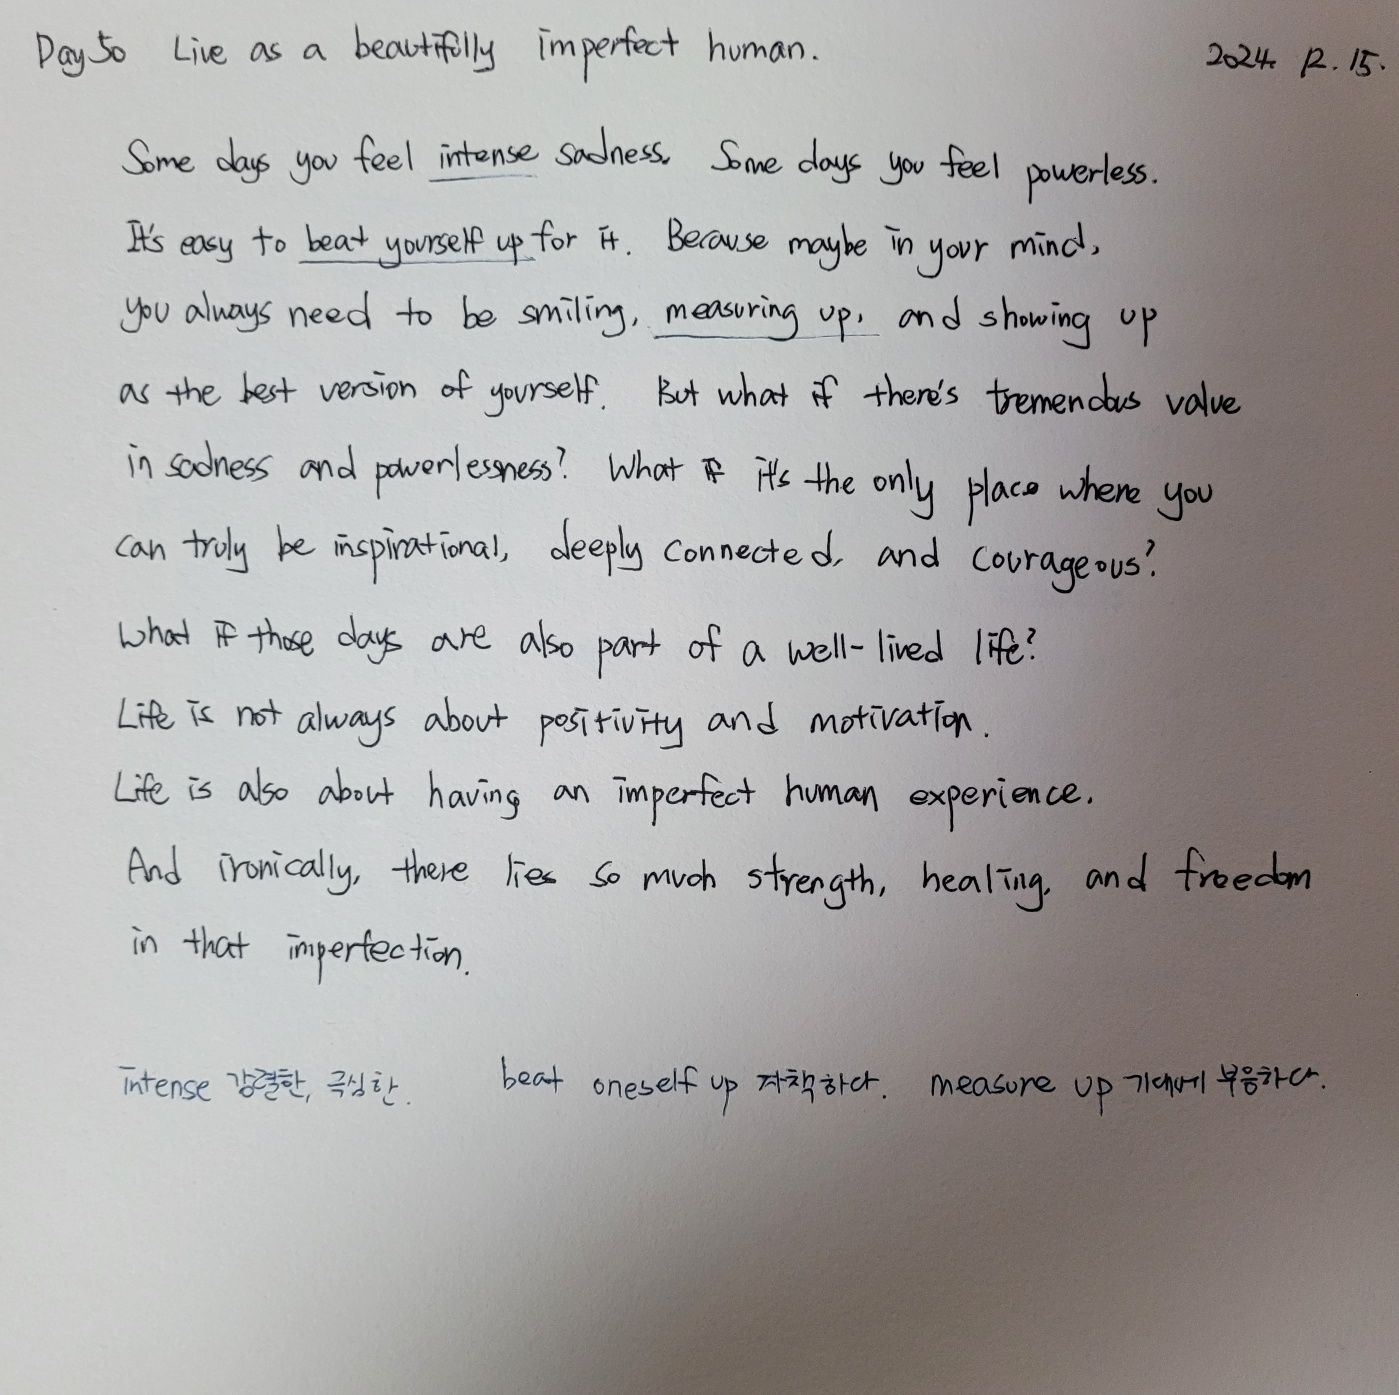 Day 50 Live as a beautifully imperfect human. 2024. 12. 15.
Some days you feel intense sadness. Some days you feel powerless.
It's easy to beat yourself up for it. Because maybe in your mind,
you always need to be smiling, measuring up, and showing up
as the best version of yourself. But what if there's tremendous value
in sadness and powerlessness? What if it's the only place where you
can truly be inspirational, deeply connected, and courageous?
What if those days are also part of a well-lived life?
Life is not always about positivity and motivation.
Life is also about having an imperfect human experience.
And ironically, there lies so much strength, healing, and freedom
in that imperfection.
intense 강렬한, 극심한. beat oneself up 자책하다. measure up 기대에 부응하다.